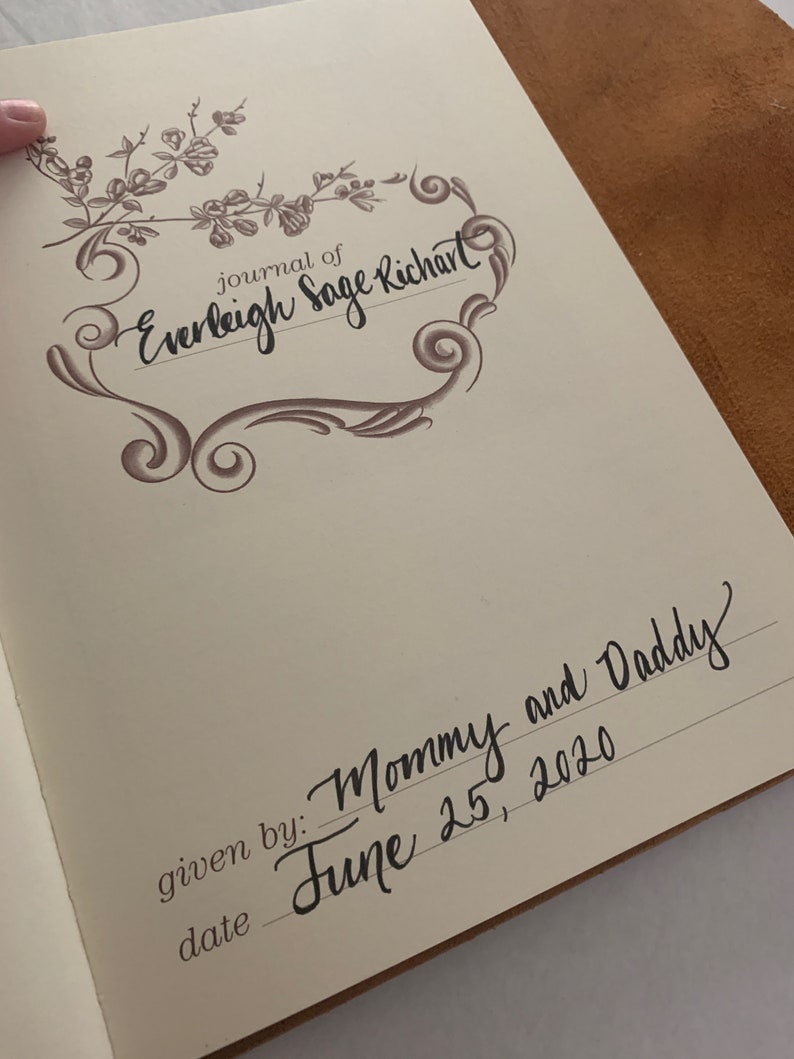 journal of
Everleigh Sage Richart
given by: Mommy and Daddy
date June 25, 2020